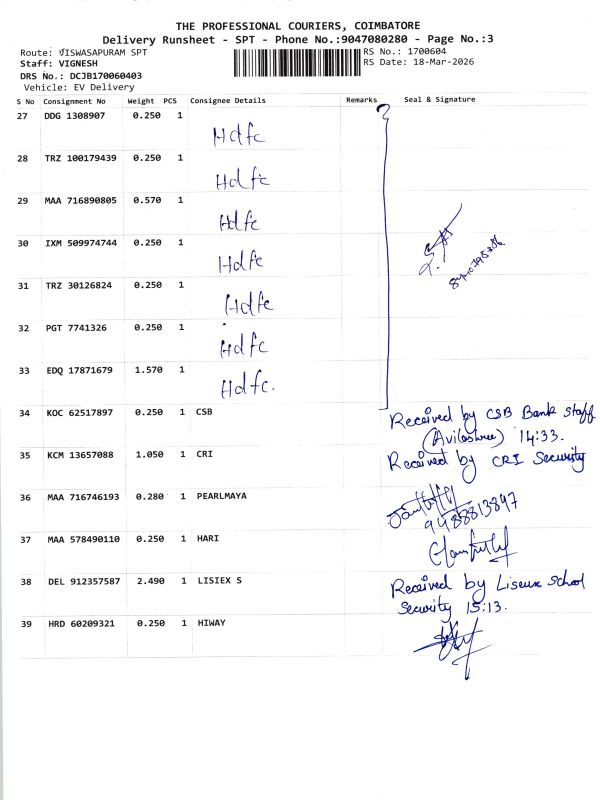 THE PROFESSIONAL COURIERS, COIMBATORE
Delivery Runsheet - SPT - Phone No.:9047080280 - Page No.:3
Route: VISWASAPURAM SPT
RS No.: 1700604
Staff: VIGNESH
RS Date: 18-Mar-2026
DRS No.: DCJB170060403
Vehicle: EV Delivery
S No Consignment No Weight PCS Consignee Details Remarks Seal & Signature
27 DDG 1308907 0.250 1
Hdfc
28 TRZ 100179439 0.250 1
Hdfc
29 MAA 716890805 0.570 1
Hdfc
30 IXM 509974744 0.250 1
Hdfc
31 TRZ 30126824 0.250 1
Hdfc
32 PGT 7741326 0.250 1
Hdfc
33 EDQ 17871679 1.570 1
Hdfc.
34 KOC 62517897 0.250 1 CSB
Received by CSB Bank staff
14:33.
35 KCM 13657088 1.050 1 CRI
Received by CRI Security
36 MAA 716746193 0.280 1 PEARLMAYA
9488813897
37 MAA 578490110 0.250 1 HARI
38 DEL 912357587 2.490 1 LISIEX S
Received by Liseux School
Security 15:13.
39 HRD 60209321 0.250 1 HIWAY